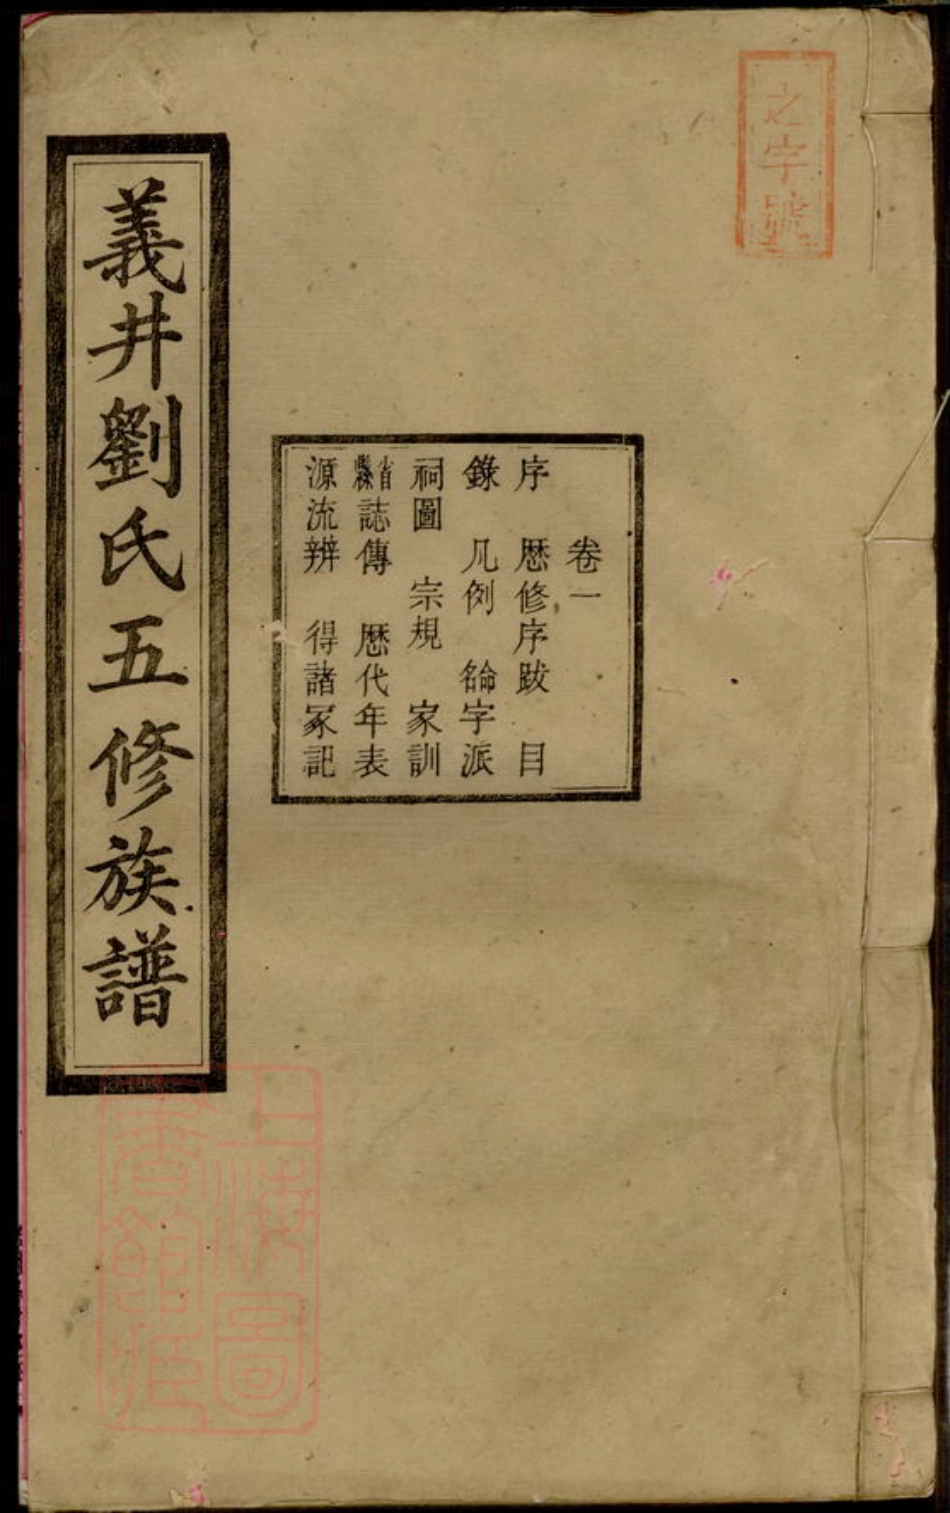 之字號
卷一
序　歷修序跋　目
錄　凡例　命名字派
祠圖　宗規　家訓
省縣誌傳　歷代年表
源流辨　得諸冢記
義井劉氏五修族譜
上海圖
書館藏